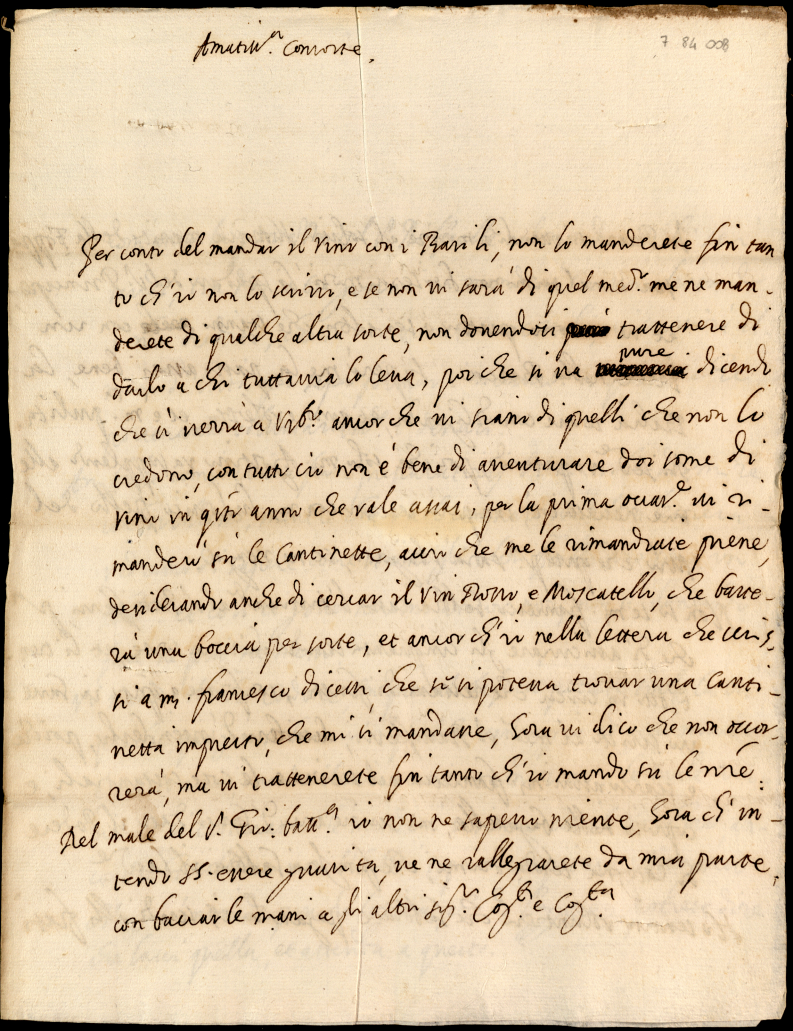 Amatiss.ma Consorte,
7 84 008
Per conto del mandar il vino con i Barili, non lo manderete fin tan
to ch'io non lo scrivo, e se non vi sarà di quel med.o me ne man-
derete di qualche altra sorte, non dovendosi più trattenere di
darlo a chi tuttavia lo leva, poi che si va pure dicendo
che si verrà a Urb.o ancor che vi siano di quelli che non lo
credono, con tutto ciò non è bene di aventurare doi some di
vino in q.sto anno che vale assai, per la prima occas.e vi ri-
manderò sù le Cantinette, acciò che me le rimandiate piene,
desiderando anche di cercar il vin Rosso, e Moscatello, che baste-
rà una boccia per sorte, et ancor ch'io nella lettera che scris-
si a m. francesco dicessi, che se si poteva trovar una Canti-
netta impresto, che mi si mandasse, hora vi dico che non occor-
rerà, ma vi trattenerete fin tanto ch'io mando sù le n.re.
Del male del S. Gio: batt.a io non ne sapevo niente, hora ch'in-
tendo SS. essere guarita, ve ne rallegrarete da mia parte,
con bacciar le mani a gli altri sig.ri Cog.ti e Cog.ta